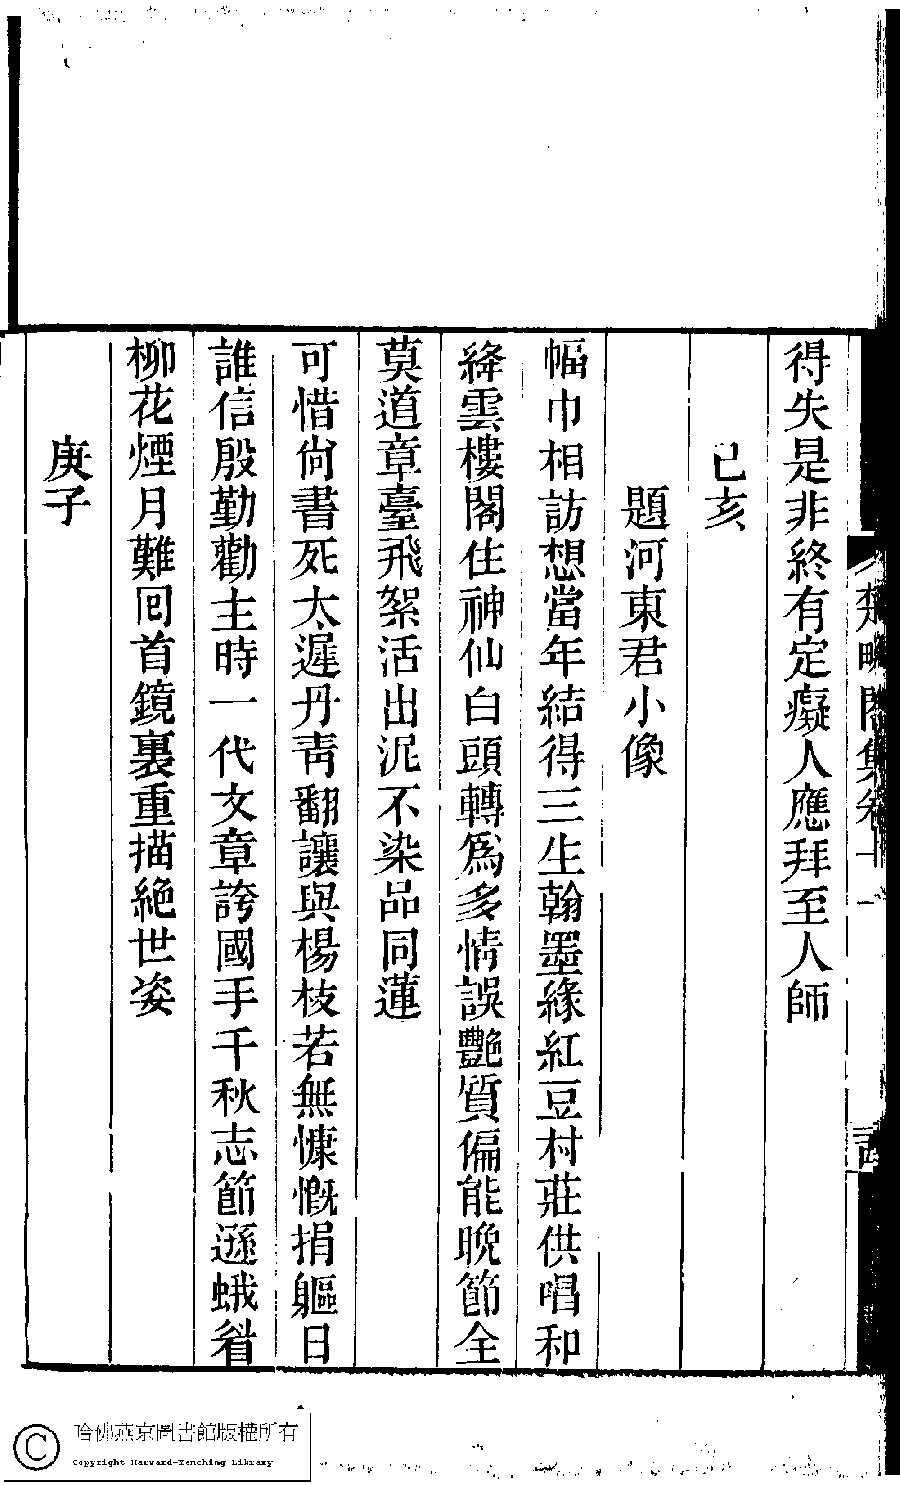 得失是非終有定癡人應拜至人師
己亥
題河東君小像
幅巾相訪想當年結得三生翰墨緣紅豆村莊供唱和
絳雲樓閣住神仙白頭轉爲多情誤艷質偏能晚節全
莫道章臺飛絮活出泥不染品同蓮
可惜尙書死太遲丹靑翻讓與楊枝若無慷慨捐軀日
誰信殷勤勸主時一代文章誇國手千秋志節遜蛾眉
柳花煙月難囘首鏡裏重描絶世姿
庚子
哈佛燕京圖書館版權所有
Copyright Harvard-Yenching Library